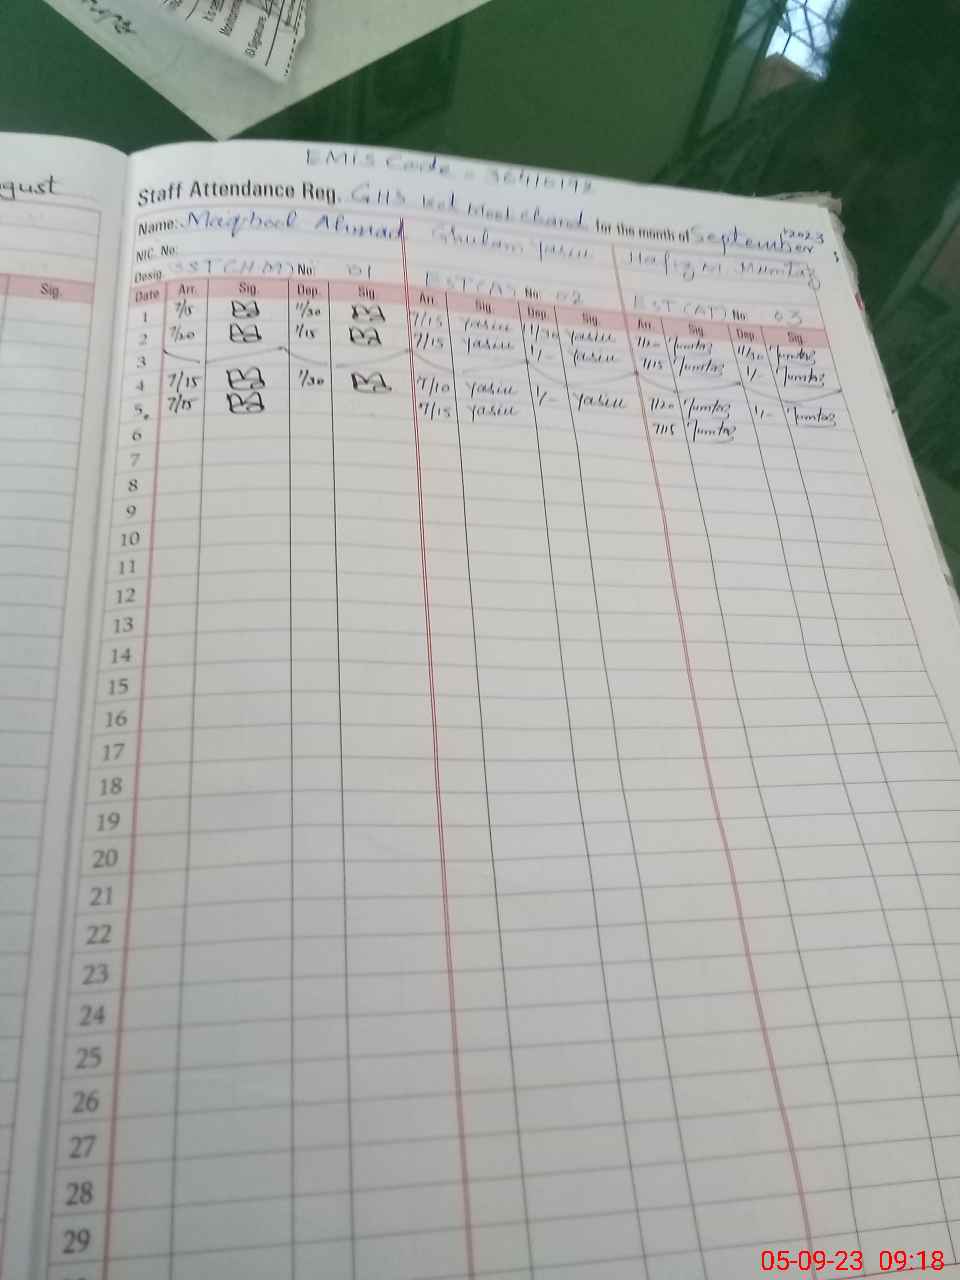 It is
Monitoring
(S) Signature
gust
Sig.
EMIS Code = 36416192
Staff Attendance Reg. GHS Kot Mool chand for the month of September 2023
Name: Maqbool Ahmad Ghulam Yasin Hafiz M. Mumtaz
NIC. No:
Desig. SST (H.M) No: 01 EST (A) No 02 EST (AT) No 03
Date Arr. Sig. Dep. Sig. Arr. Sig. Dep. Sig. Arr. Sig. Dep. Sig.
1 7/15 11/30 7/15 Yasin 11/30 Yasin 7/20 Mumtaz 11/30 Mumtaz
2 7/20 1/15 7/15 Yasin 1/- Yasin 7/15 Mumtaz 1/- Mumtaz
3
4 7/15 1/30 7/10 Yasin 1/- Yasin 7/20 Mumtaz 1/- Mumtaz
5 7/15 7/15 Yasin 7/15 Mumtaz
6
7
8
9
10
11
12
13
14
15
16
17
18
19
20
21
22
23
24
25
26
27
28
29
05-09-23 09:18